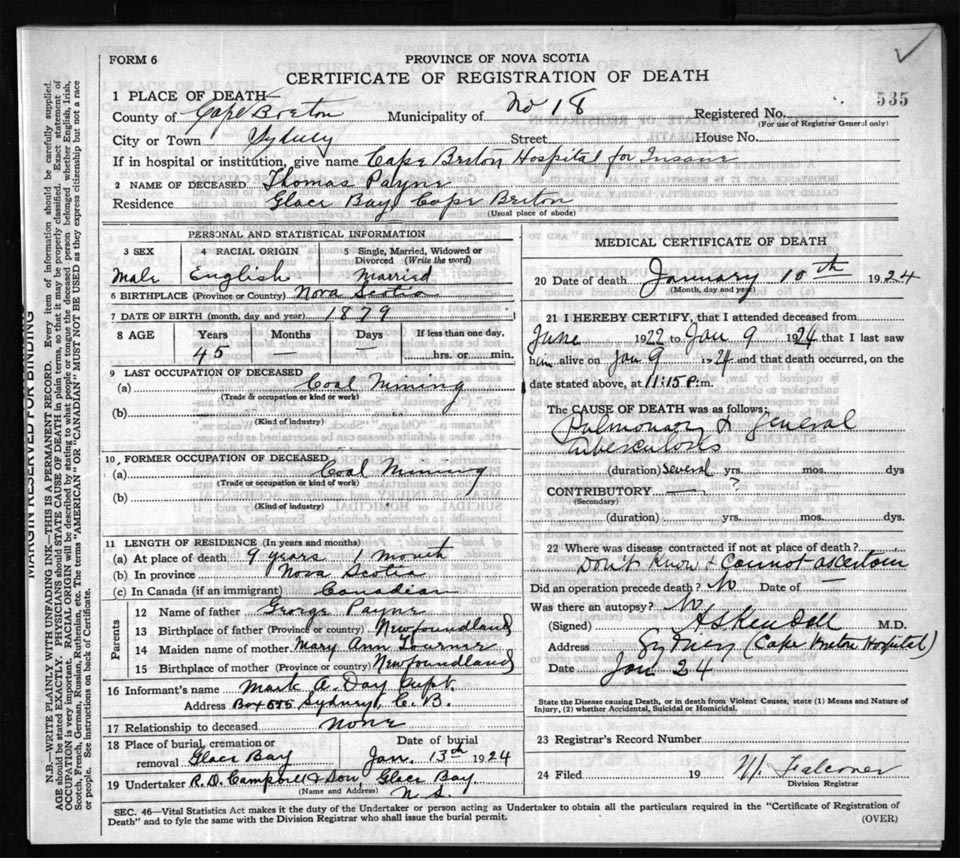 FORM 6
PROVINCE OF NOVA SCOTIA
CERTIFICATE OF REGISTRATION OF DEATH
535
1 PLACE OF DEATH
County of Cape Breton Municipality of No 18 Registered No.
(For use of Registrar General only)
City or Town Sydney Street House No.
If in hospital or institution, give name Cape Breton Hospital for Insane
2 NAME OF DECEASED Thomas Payne
Residence Glace Bay Cape Breton
(Usual place of abode)
PERSONAL AND STATISTICAL INFORMATION
3 SEX 4 RACIAL ORIGIN 5 Single, Married, Widowed or Divorced (Write the word)
Male English Married
6 BIRTHPLACE (Province or Country) Nova Scotia
7 DATE OF BIRTH (month, day and year) 1879
8 AGE Years Months Days If less than one day.
45 — hrs. or min.
9 LAST OCCUPATION OF DECEASED
(a) Coal Mining
(Trade or occupation or kind or work)
(b)
(Kind of industry)
10 FORMER OCCUPATION OF DECEASED
(a) Coal Mining
(Trade or occupation or kind of work)
(b)
(Kind of industry)
11 LENGTH OF RESIDENCE (In years and months)
(a) At place of death 9 years 1 month
(b) In province Nova Scotia
(c) In Canada (if an immigrant) Canadian
Parents
12 Name of father George Payne
13 Birthplace of father (Province or country) Newfoundland
14 Maiden name of mother Mary Ann
15 Birthplace of mother (Province or country) Newfoundland
16 Informant's name Mark A. Day Supt.
Address Box 575 Sydney, C. B.
17 Relationship to deceased None
18 Place of burial, cremation or removal Glace Bay Date of burial Jan. 13th 1924
19 Undertaker R. D. Campbell & Son Glace Bay
(Name and Address) N. S.
MEDICAL CERTIFICATE OF DEATH
20 Date of death January 10th 1924
(Month, day and year)
21 I HEREBY CERTIFY, that I attended deceased from
June 1922 to Jan 9 1924 that I last saw
him alive on Jan 9 1924 and that death occurred, on the
date stated above, at 11:15 P.m.
The CAUSE OF DEATH was as follows:
Pulmonary & General
Tuberculosis
(duration) Several yrs. mos. dys
?
CONTRIBUTORY —
(Secondary)
(duration) yrs. mos. dys.
22 Where was disease contracted if not at place of death?
Don't Know & Cannot ascertain
Did an operation precede death? No Date of —
Was there an autopsy? No
(Signed) A S Kendall M.D.
Address Sydney (Cape Breton Hospital)
Date Jan 24
State the Disease causing Death, or in death from Violent Causes, state (1) Means and Nature
of Injury, (2) whether Accidental, Suicidal or Homicidal.
23 Registrar's Record Number
24 Filed 19 Falconer
Division Registrar
SEC. 46—Vital Statistics Act makes it the duty of the Undertaker or person acting as Undertaker to obtain all the particulars required in the "Certificate of Registration of
Death" and to fyle the same with the Division Registrar who shall issue the burial permit. (OVER)
MARGIN RESERVED FOR BINDING
N.B.—WRITE PLAINLY WITH UNFADING INK—THIS IS A PERMANENT RECORD. Every item of information should be carefully supplied.
AGE should be stated EXACTLY. PHYSICIANS should STATE CAUSE OF DEATH in plain terms, so that it may be properly classified. Exact statement of
OCCUPATION is very important. RACIAL ORIGIN will be described by stating to what people or tongue the deceased person belonged whether English, Irish,
Scotch, French, German, Russian, Ruthenian, etc. The terms "AMERICAN" OR "CANADIAN" MUST NOT BE USED as they express citizenship but not a race
or people. See instructions on back of Certificate.